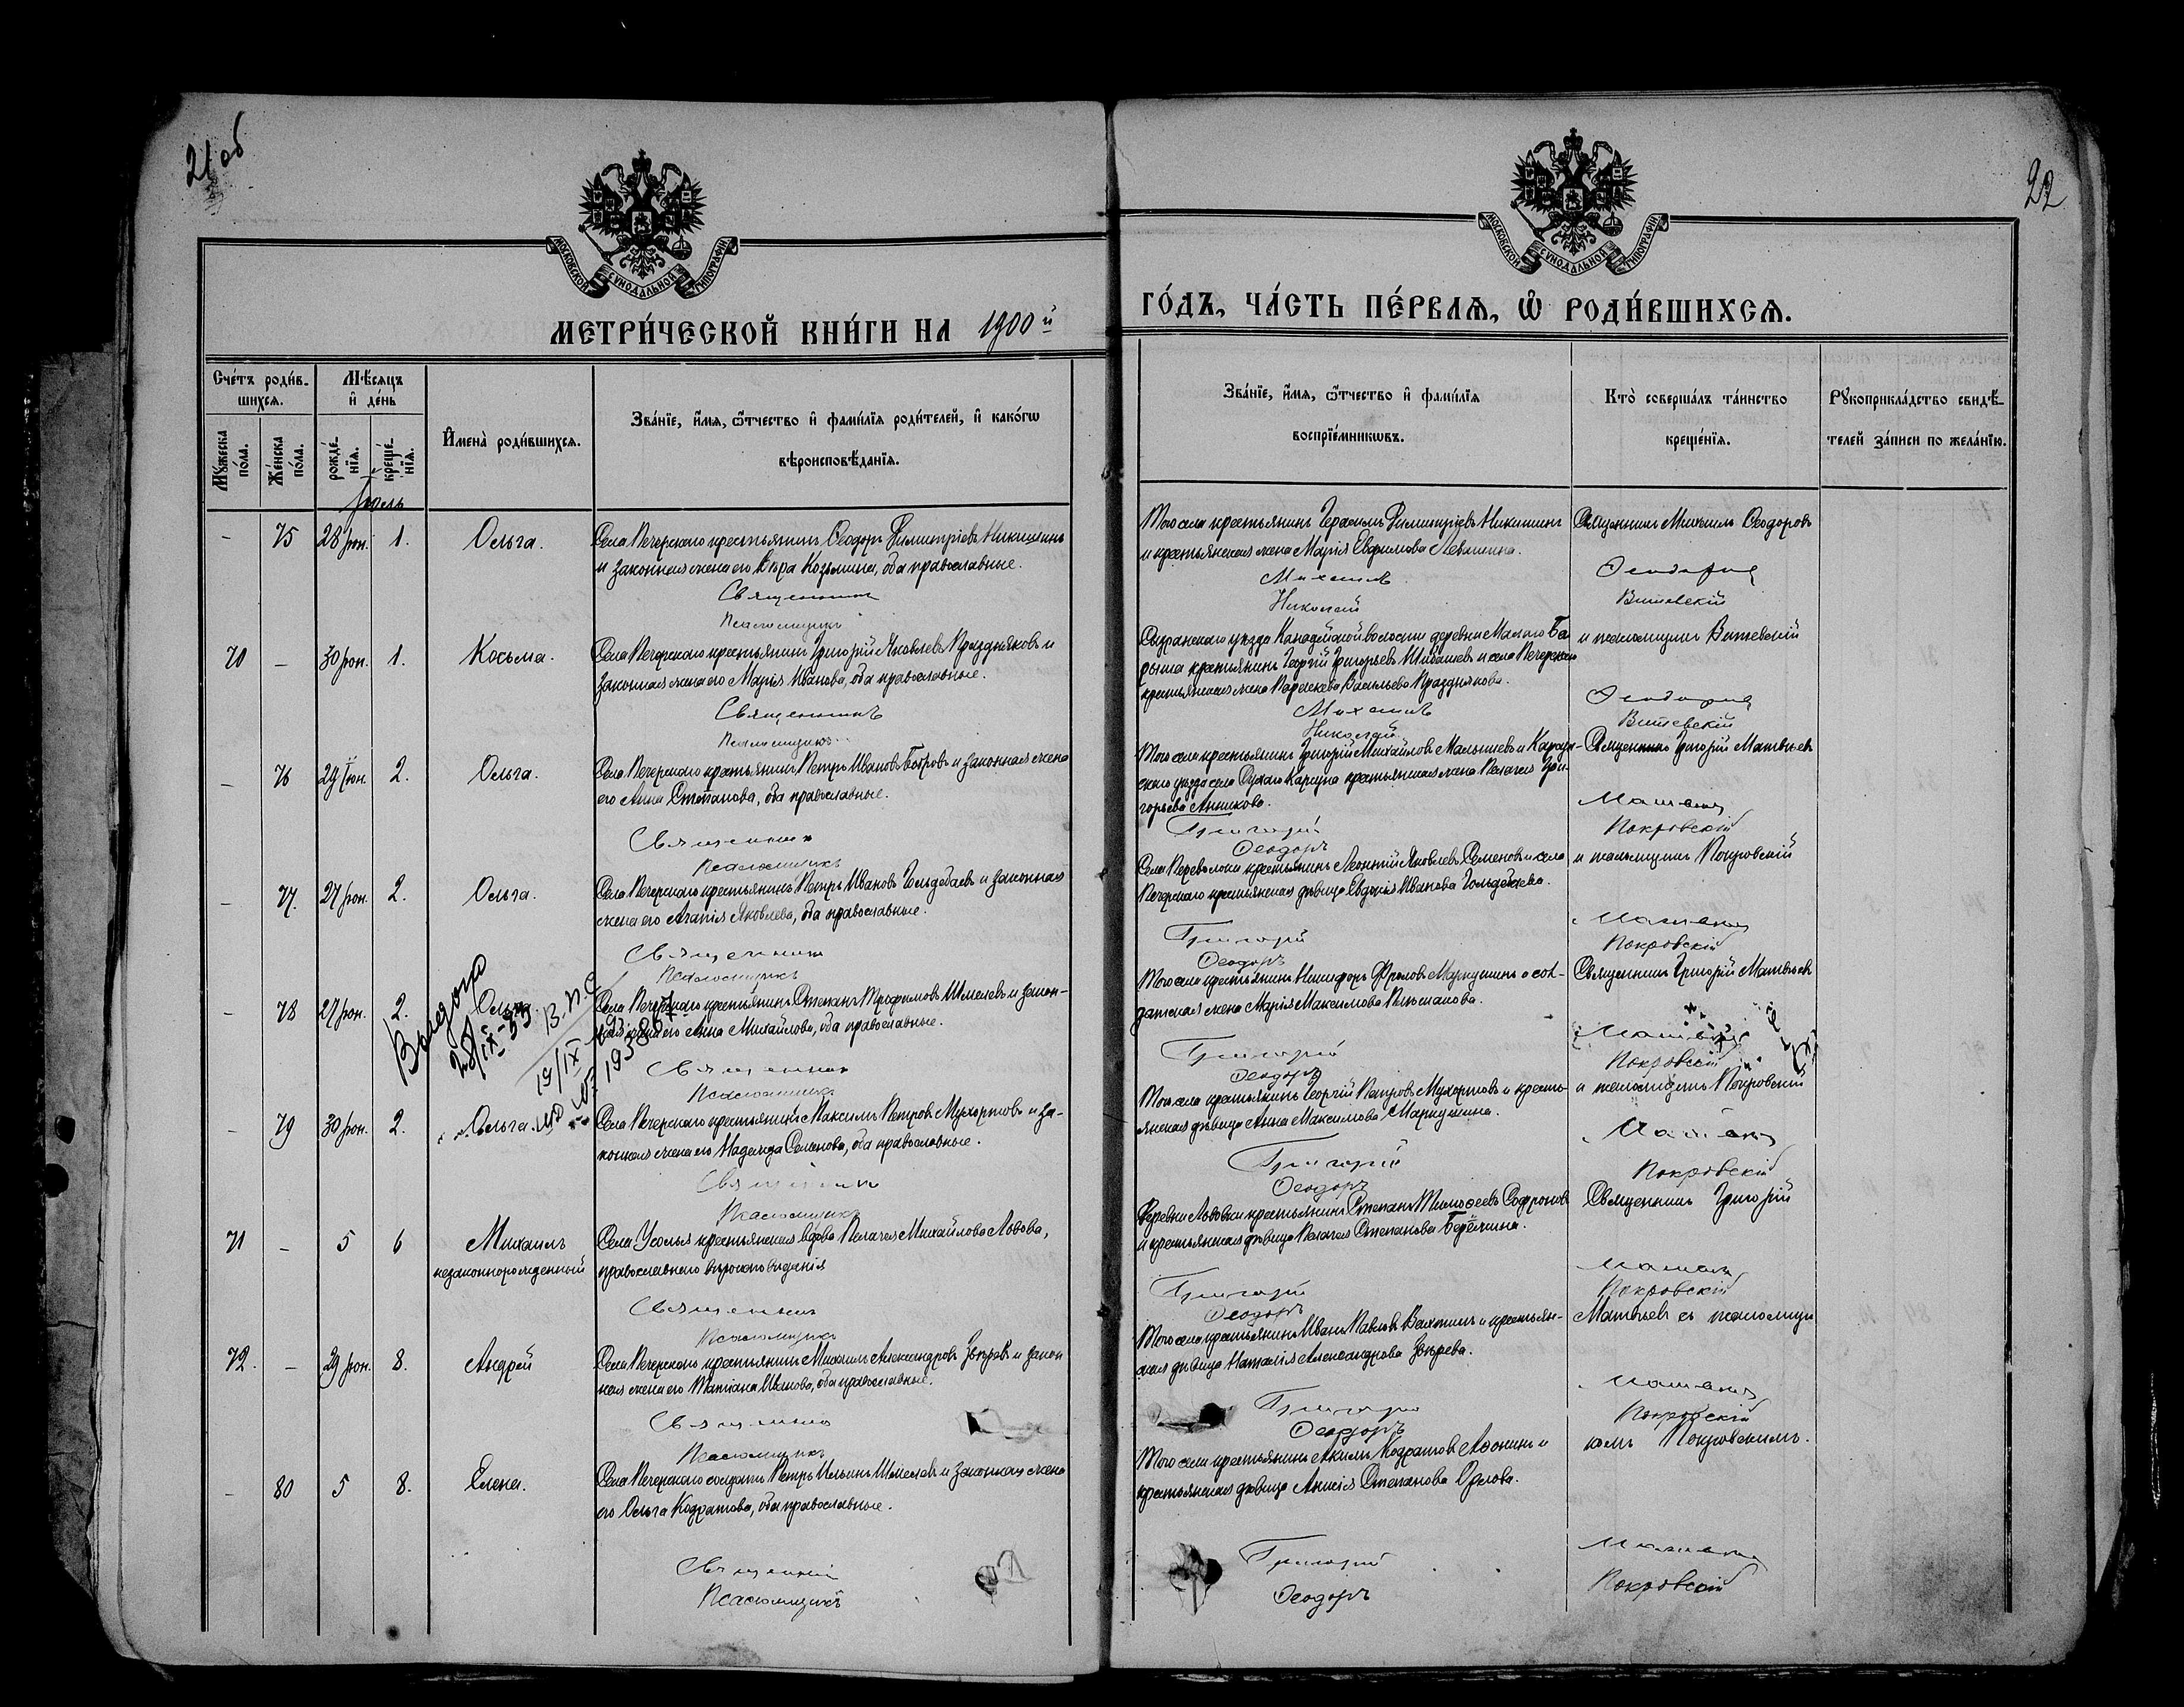 21 об
22
МОСКОВСКОЙ СѴНОДАЛЬНОЙ ТИПОГРАФІИ
МОСКОВСКОЙ СѴНОДАЛЬНОЙ ТИПОГРАФІИ
МЕТРИ́ЧЕСКОЙ КНИ́ГИ НА 1900й
ГО́ДЪ, ЧА́СТЬ ПЕ́РВАѦ, Ѡ҆ РОДИ́ВШИХСѦ.
Сче́тъ роди́в-
шихсѧ.
Мѣ́сѧцъ
и҆ де́нь
Мꙋ́жеска
по́ла.
Же́нска
по́ла.
рожде́-
нїѧ.
креще́-
нїѧ.
И҆мена̀ роди́вшихсѧ.
Зва́нїе, и҆́мѧ, ѻ҆́тчество и҆ фами́лїѧ роди́телей, и҆ како́гѡ
вѣроисповѣ́данїѧ.
Зва́нїе, и҆́мѧ, ѻ҆́тчество и҆ фами́лїѧ
воспрїе́мникѡвъ.
Кто̀ соверша́лъ та́инство
креще́нїѧ.
Рꙋкоприкла́дство свидѣ́-
телей за́писи по жела́нїю.
Іюль
– 75 28 іюн. 1. Ольга.
Села Печерскаго крестьянинъ Ѳеодоръ Димитріевъ Никишинъ
и законная жена его Вѣра Козьмина, оба православные.
Священникъ
Псаломщикъ
Того села крестьянинъ Герасимъ Димитріевъ Никишинъ
и крестьянская жена Марія Евфимова Левшина.
Михаилъ
Николай
Священникъ Михаилъ Ѳеодоровъ
Ѳеодоровъ
Витевскій
70 – 30 іюн. 1. Косьма.
Села Печерскаго крестьянинъ Григорій Яковлевъ Праздняковъ и
законная жена его Марія Иванова, оба православные.
Священникъ
Псаломщикъ
Сызранскаго уѣзда Канадейской волости деревни Малаго Ба
рыша крестьянинъ Георгій Григорьевъ Шибашевъ и села Печерскаго
крестьянская жена Параскева Васильева Празднякова.
Михаилъ
Николай
и псаломщикъ Витевскій
Ѳеодоровъ
Витевскій
– 76 29 Іюн. 2. Ольга.
Села Печерскаго крестьянинъ Петръ Ивановъ Бобровъ и законная жена
его Анна Стефанова, оба православные.
Священникъ
Псаломщикъ
Того села крестьянинъ Григорій Михайловъ Малышевъ и Карсун-
скаго уѣзда села Сухаго Карсуна крестьянская жена Пелагея Гри-
горьева Анникова.
Григорій
Ѳеодоръ
Священникъ Григорій Матвѣевъ
Матвѣевъ
Покровскій
– 77. 27 іюн. 2. Ольга.
Села Печерскаго крестьянинъ Петръ Ивановъ Гольдебаевъ и законная
жена его Агапія Яковлева, оба православные.
Священникъ
Псаломщикъ
Села Переволоки крестьянинъ Леонтій Яковлевъ Семеновъ и села
Печерскаго крестьянская дѣвица Евдокія Иванова Гольдебаева.
Григорій
Ѳеодоръ
и псаломщикъ Покровскій
Матвѣевъ
Покровскій
– 78 27 іюн. 2. Ольга.
Села Печерскаго крестьянинъ Степанъ Трофимовъ Шмелевъ и закон-
ная жена его Анна Михайлова, оба православные.
Священникъ
Псаломщикъ
Того села крестьянинъ Никифоръ Фроловъ Маркушинъ и сол-
датская жена Марія Максимова Плеханова.
Григорій
Ѳеодоръ
Священникъ Григорій Матвѣевъ
Матвѣевъ
Покровскій
– 79 30 іюн. 2. Ольга.
Села Печерскаго крестьянинъ Максимъ Петровъ Мухортовъ и за-
конная жена его Надежда Семенова, оба православные.
Священникъ
Псаломщикъ
Того села крестьянинъ Георгій Петровъ Мухортовъ и кресть-
янская дѣвица Анна Максимова Маркушина.
Григорій
Ѳеодоръ
и псаломщикъ Покровскій
Матвѣевъ
Покровскій
71 – 5 6 Михаилъ
незаконнорожденный
Села Усолья крестьянская вдова Пелагея Михайлова Львова,
православнаго вѣроисповѣданія
Священникъ
Псаломщикъ
Деревни Львовки крестьянинъ Степанъ Тимоѳеевъ Софроновъ
и крестьянская дѣвица Пелагея Степанова
Григорій
Ѳеодоръ
Священникъ Григорій
Матвѣевъ
Покровскій
72. – 29 іюн. 8. Андрей
Села Печерскаго крестьянинъ Михаилъ Александровъ Звѣревъ и закон
ная жена его Татіана Иванова, оба православные.
Священникъ
Псаломщикъ
Того села крестьянинъ Иванъ Павловъ и крестьян-
ская дѣвица Наталія Александрова Звѣрева.
Григорій
Ѳеодоръ
Матвѣевъ съ псаломщи
Матвѣевъ
Покровскій
– 80 5 8. Елена.
Села Печерскаго солдатъ Петръ Ильинъ Шмелевъ и законная жена
его Ольга Кодратова, оба православные.
Священникъ
Псаломщикъ
Того села крестьянинъ Акимъ Кодратовъ Аѳонинъ и
крестьянская дѣвица Анисія Степанова Орлова.
Григорій
Ѳеодоръ
комъ Покровскимъ.
Матвѣевъ
Покровскій